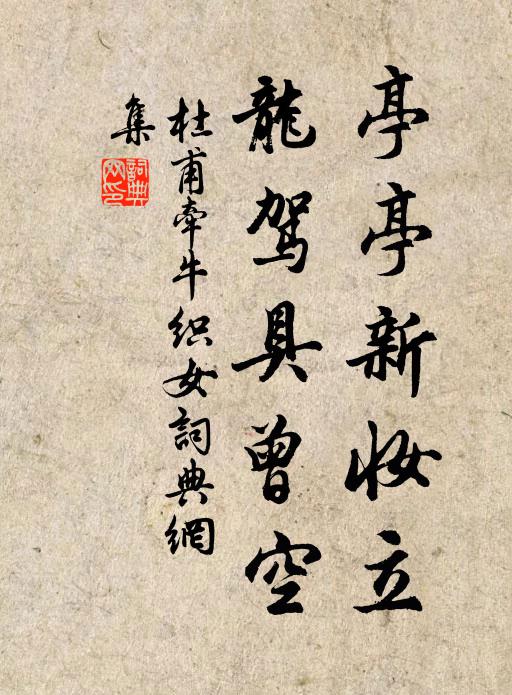 亭亭新妝立
龍駕具曾空
杜甫牽牛織女詞典網
集
詞典網印